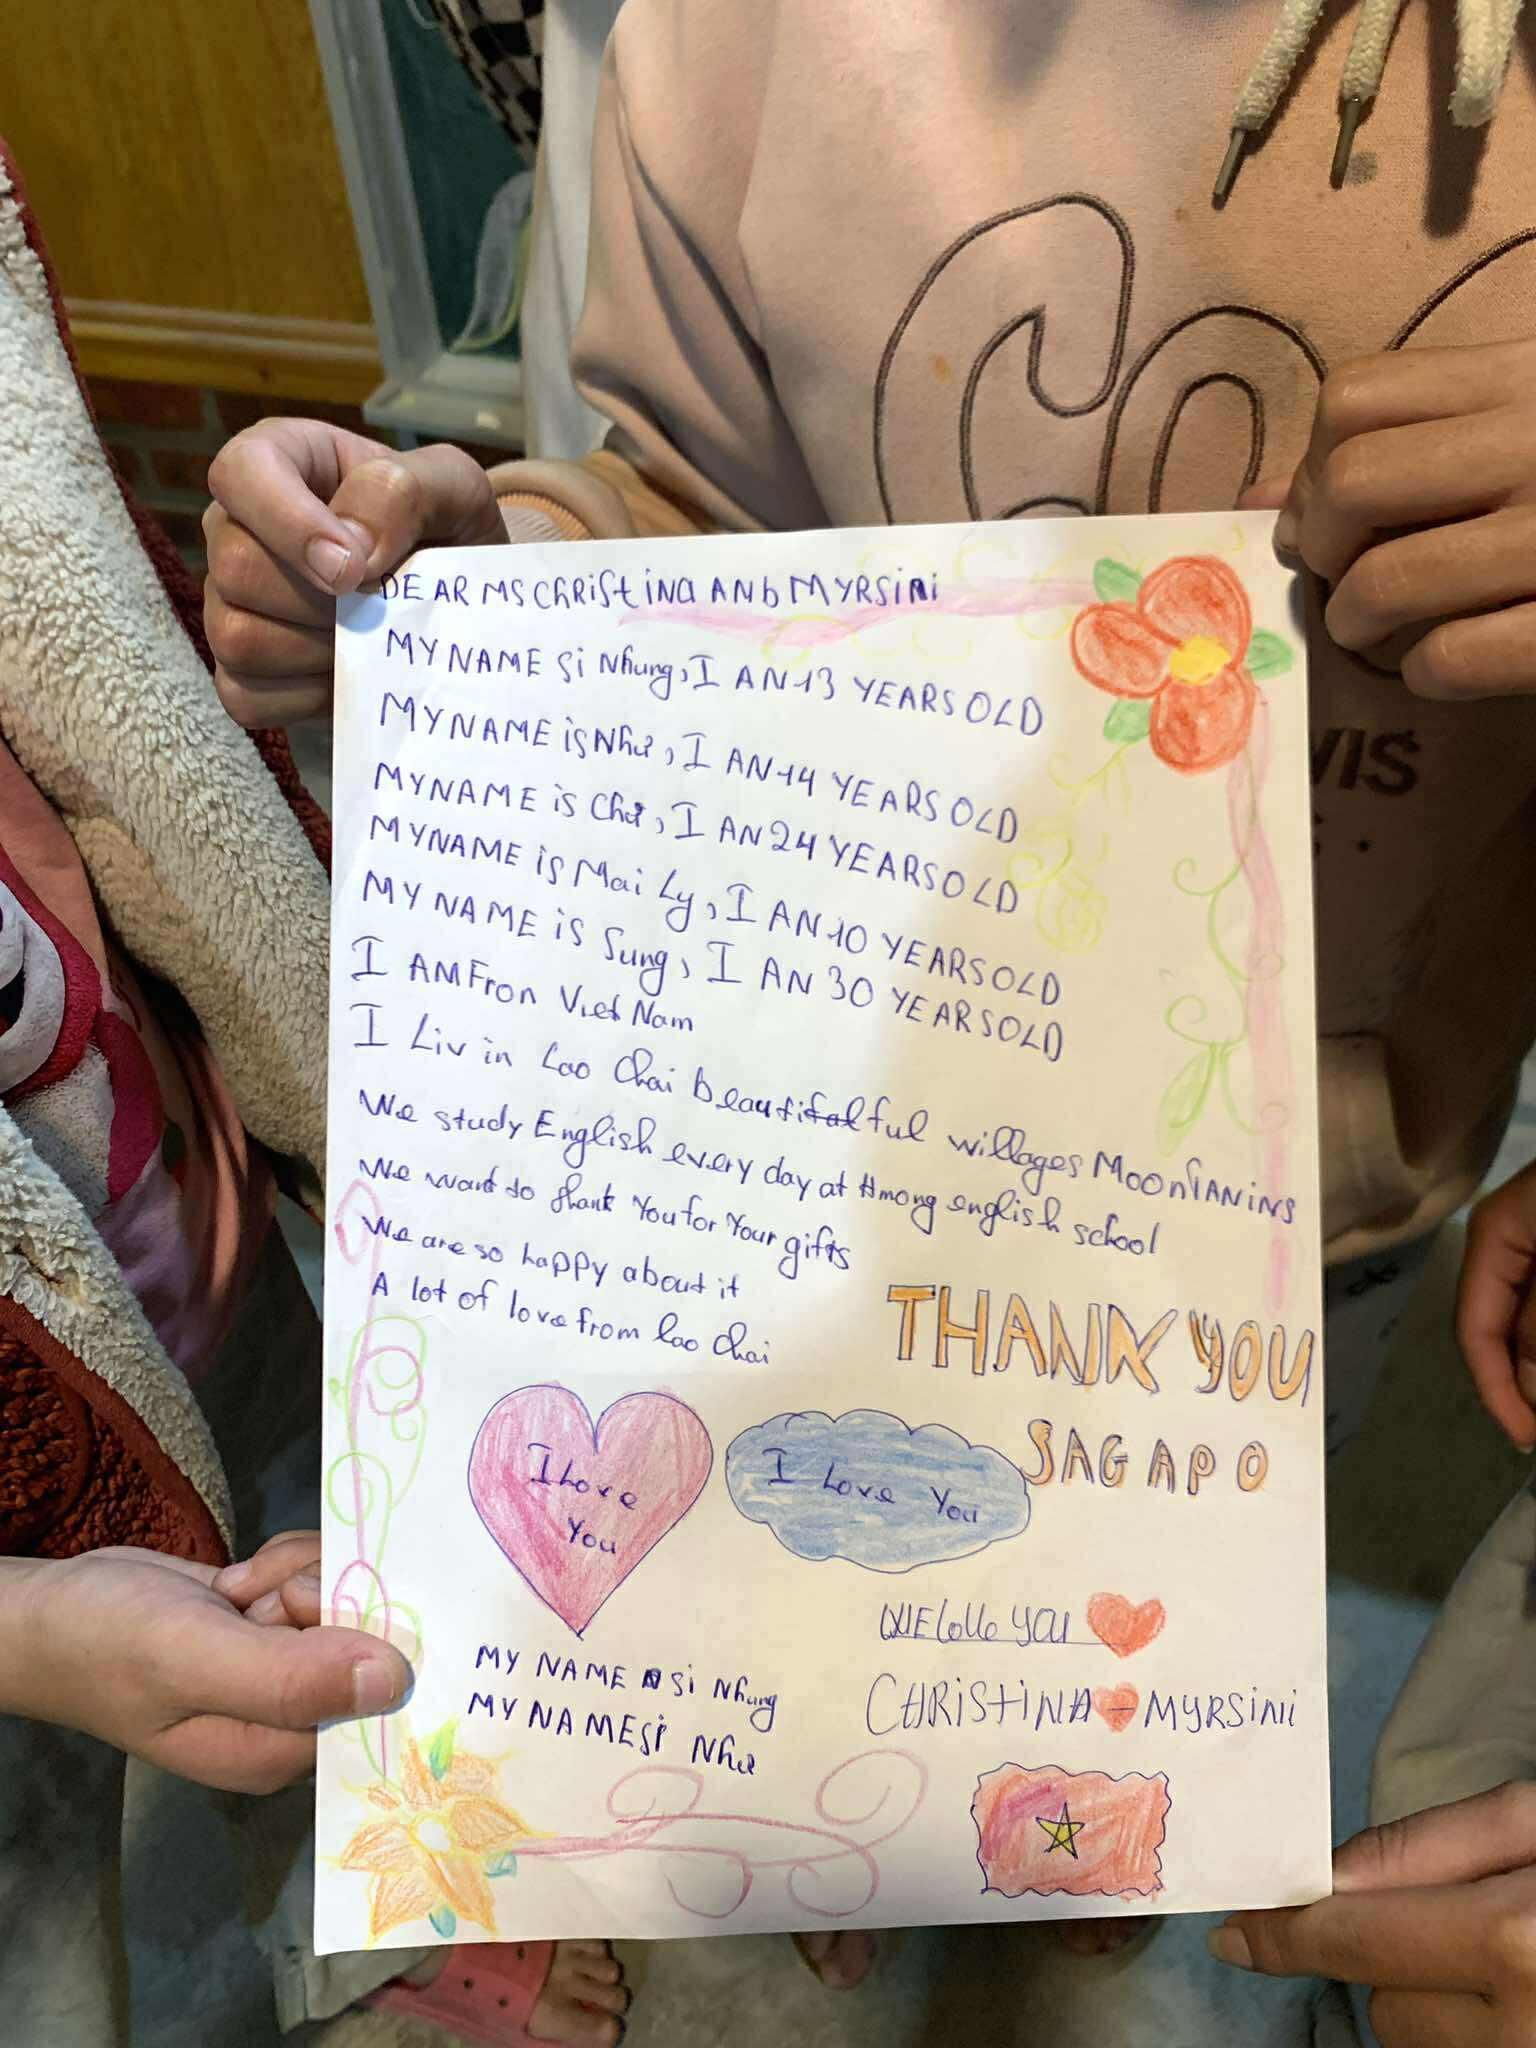 DEAR MS ChRiStiNa ANb MYRSiNi
MY NAME Si Nhung, I AN 13 YEARS OLD
MY NAME is Như, I AN 14 YEARS OLD
MY NAME is Chư, I AN 24 YEARS OLD
MY NAME is Mai Ly, I AN 10 YEARS OLD
MY NAME is Sung, I AN 30 YEARS OLD
I AM Fron Viet Nam
I Liv in Lao Chai beautifalful willages MoonTANiNS
We study English every day at Hmong english school
We want to thank You for Your gifts
We are so happy about it
A lot of love from Lao Chai
THANK YOU
SAGAPO
I Love
You
I Love You
CHRiStiNA - MYRSiNii
MY NAME Si Nhung
MY NAME Si Như